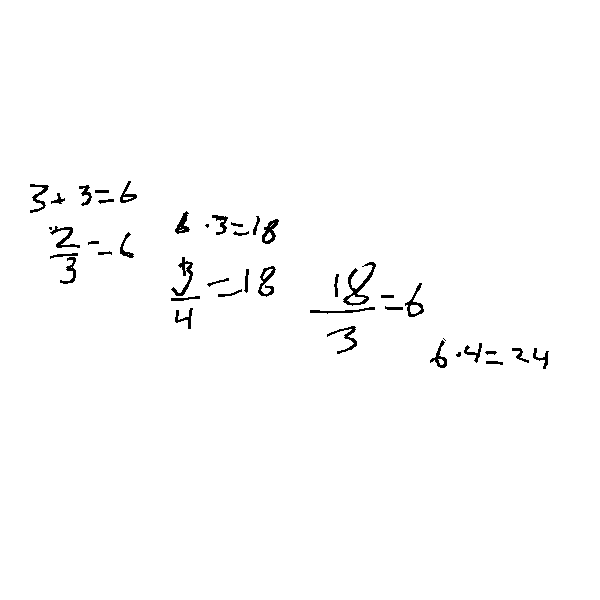 3+3=6
2/3=6
6·3=18
3/4=18
18/3=6
6·4=24